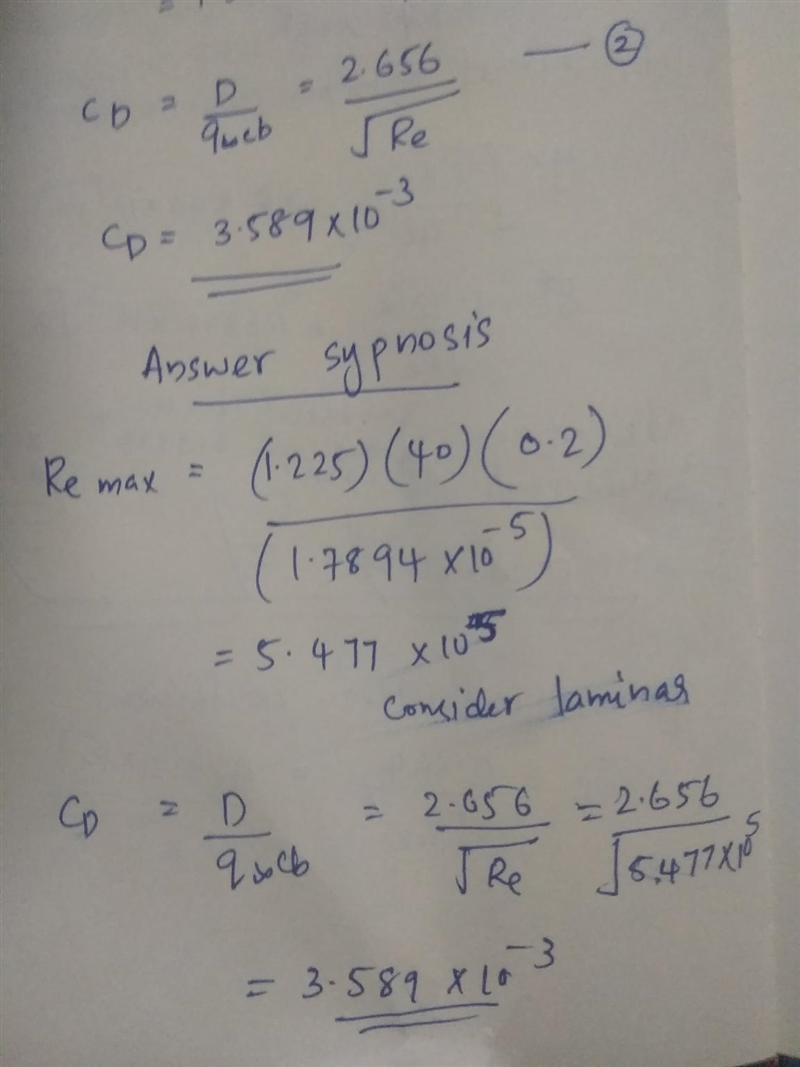 C_D = D / q∞cb = 2.656 / √Re — ②
C_D = 3.589 × 10⁻³
Answer sypnosis
Re max = (1.225) (40) (0.2) / (1.7894 × 10⁻⁵)
= 5.477 × 10⁵
Consider laminar
C_D = D / q∞cb = 2.656 / √Re = 2.656 / √5.477×10⁵
= 3.589 × 10⁻³